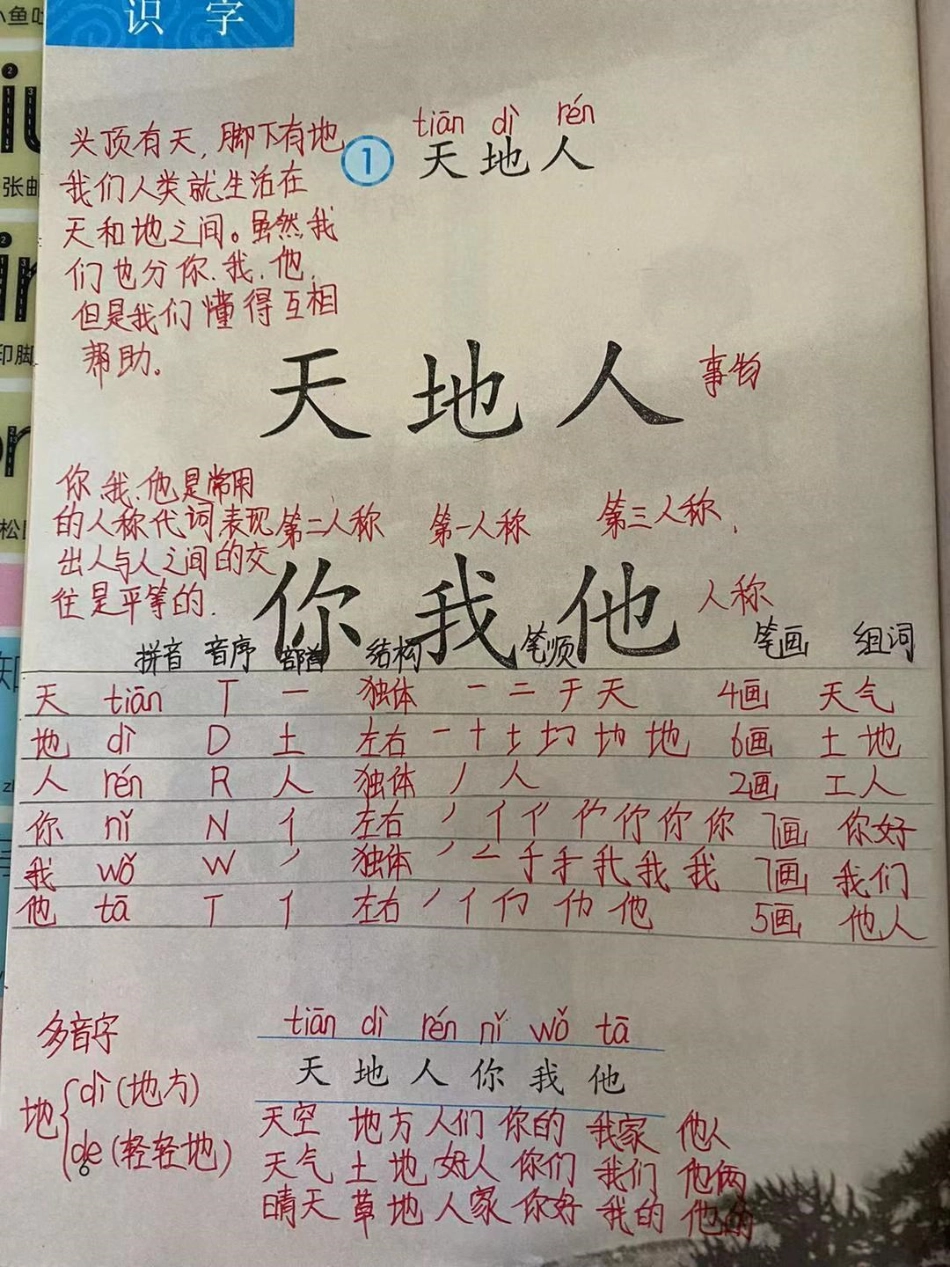 识字
tiān dì rén
① 天地人
头顶有天,脚下有地
我们人类就生活在
天和地之间。虽然我
们也分你、我、他,
但是我们懂得互相
帮助。
天地人 事物
你、我、他是常用
的人称代词表现
出人与人之间的交
往是平等的.
第二人称 第一人称 第三人称
你我他 人称
拼音 音序 部首 结构 笔顺 笔画 组词
天 tiān T 一 独体 一 二 于 天 4画 天气
地 dì D 土 左右 一 十 土 地 6画 土地
人 rén R 人 独体 丿 人 2画 工人
你 nǐ N 亻 左右 丿 亻 你 你 7画 你好
我 wǒ W 丿 独体 丿 二 手 手 我 我 7画 我们
他 tā T 亻 左右 丿 亻 他 5画 他人
多音字
地 dì (地方)
de (轻轻地)
tiān dì rén nǐ wǒ tā
天 地 人 你 我 他
天空 地方 人们 你的 我家 他人
天气 土地 好人 你们 我们 他俩
晴天 草地 人家 你好 我的 他的
小鱼吐
张邮
印脚
松